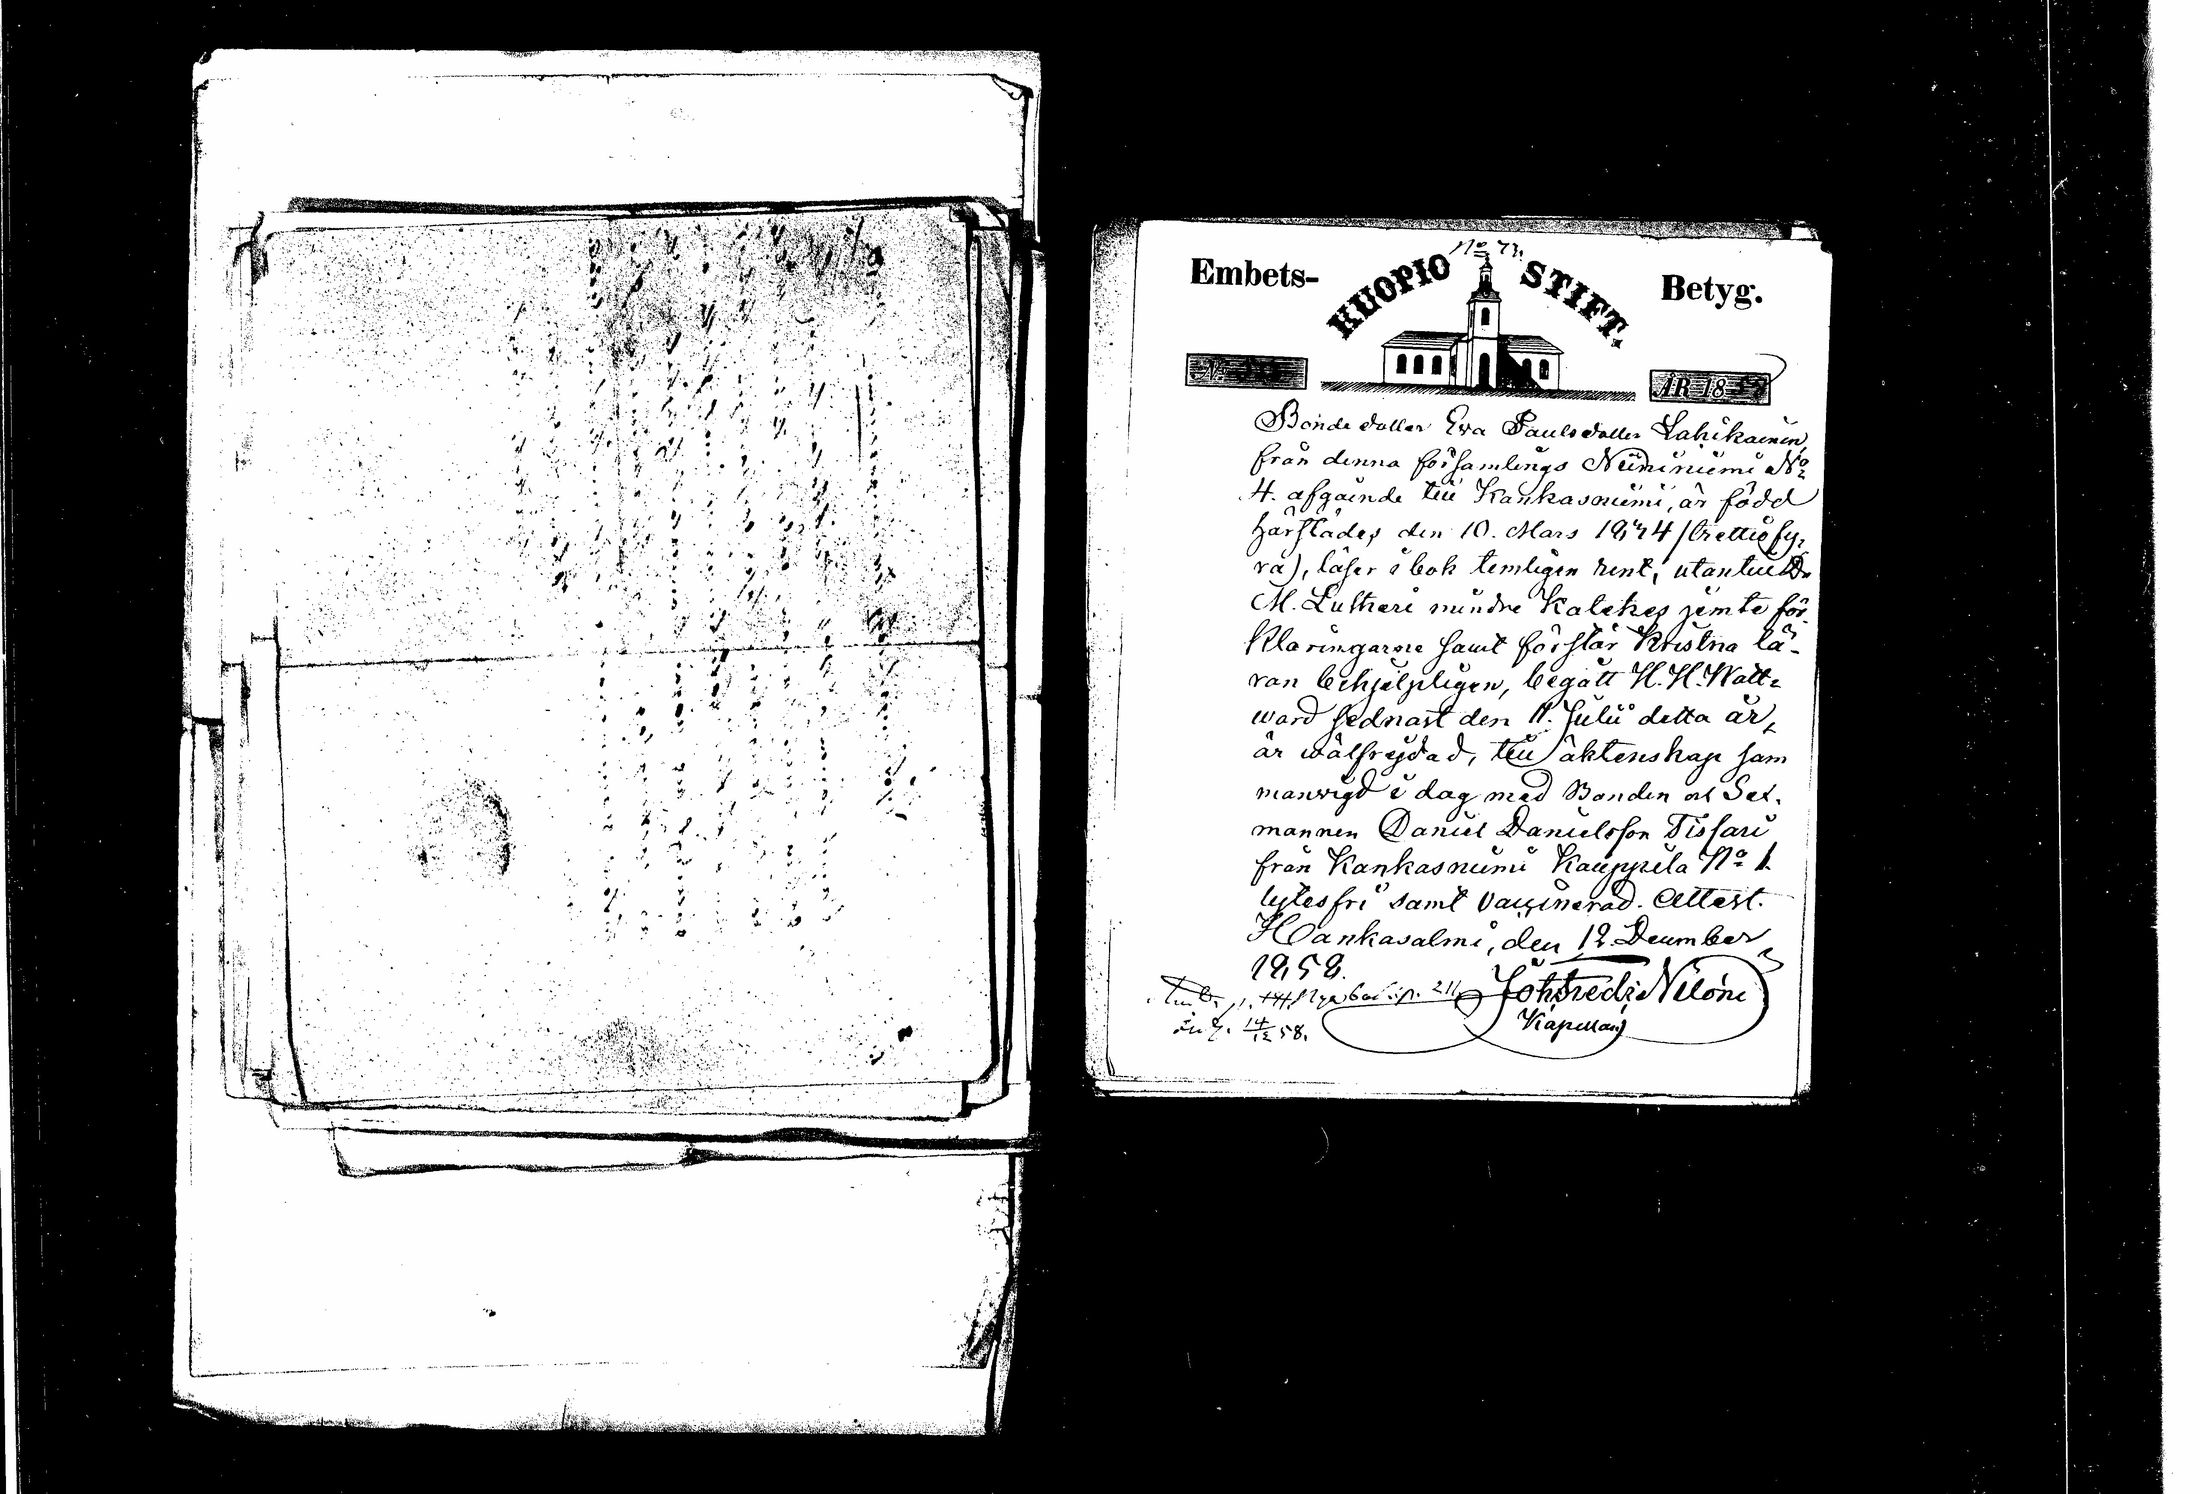 No 73.
Embets- KUOPIO STIFT. Betyg.
N:
ÅR 18
Bonde dotter Eva Paulsdotter Lahikainen
från denna församlings Niininiemi No
4. afgående till Kankasniemi, är född
härstädes den 10. Mars 1834 (trettiofy-
ra), läser i bok temligen rent, utantill D:
M. Lutheri mindre Kateches jemte för-
klaringarne samt förstår Kristna lä-
ran behjelpligen, begått H. H. Natt-
ward sednast den 11. Julii detta år,
är wälfrejdad, till äktenskap sam
manvigd i dag med Bonden och Sex-
mannen Daniel Danielsson Tissari
från Kankasniemi Kauppila No 1.
lytesfri samt vaccinerad. Attest.
Hankasalmi, den 12. December
1858.
Joh: Fredr: Niloni
Kapellan
p. 211
14/12 58.